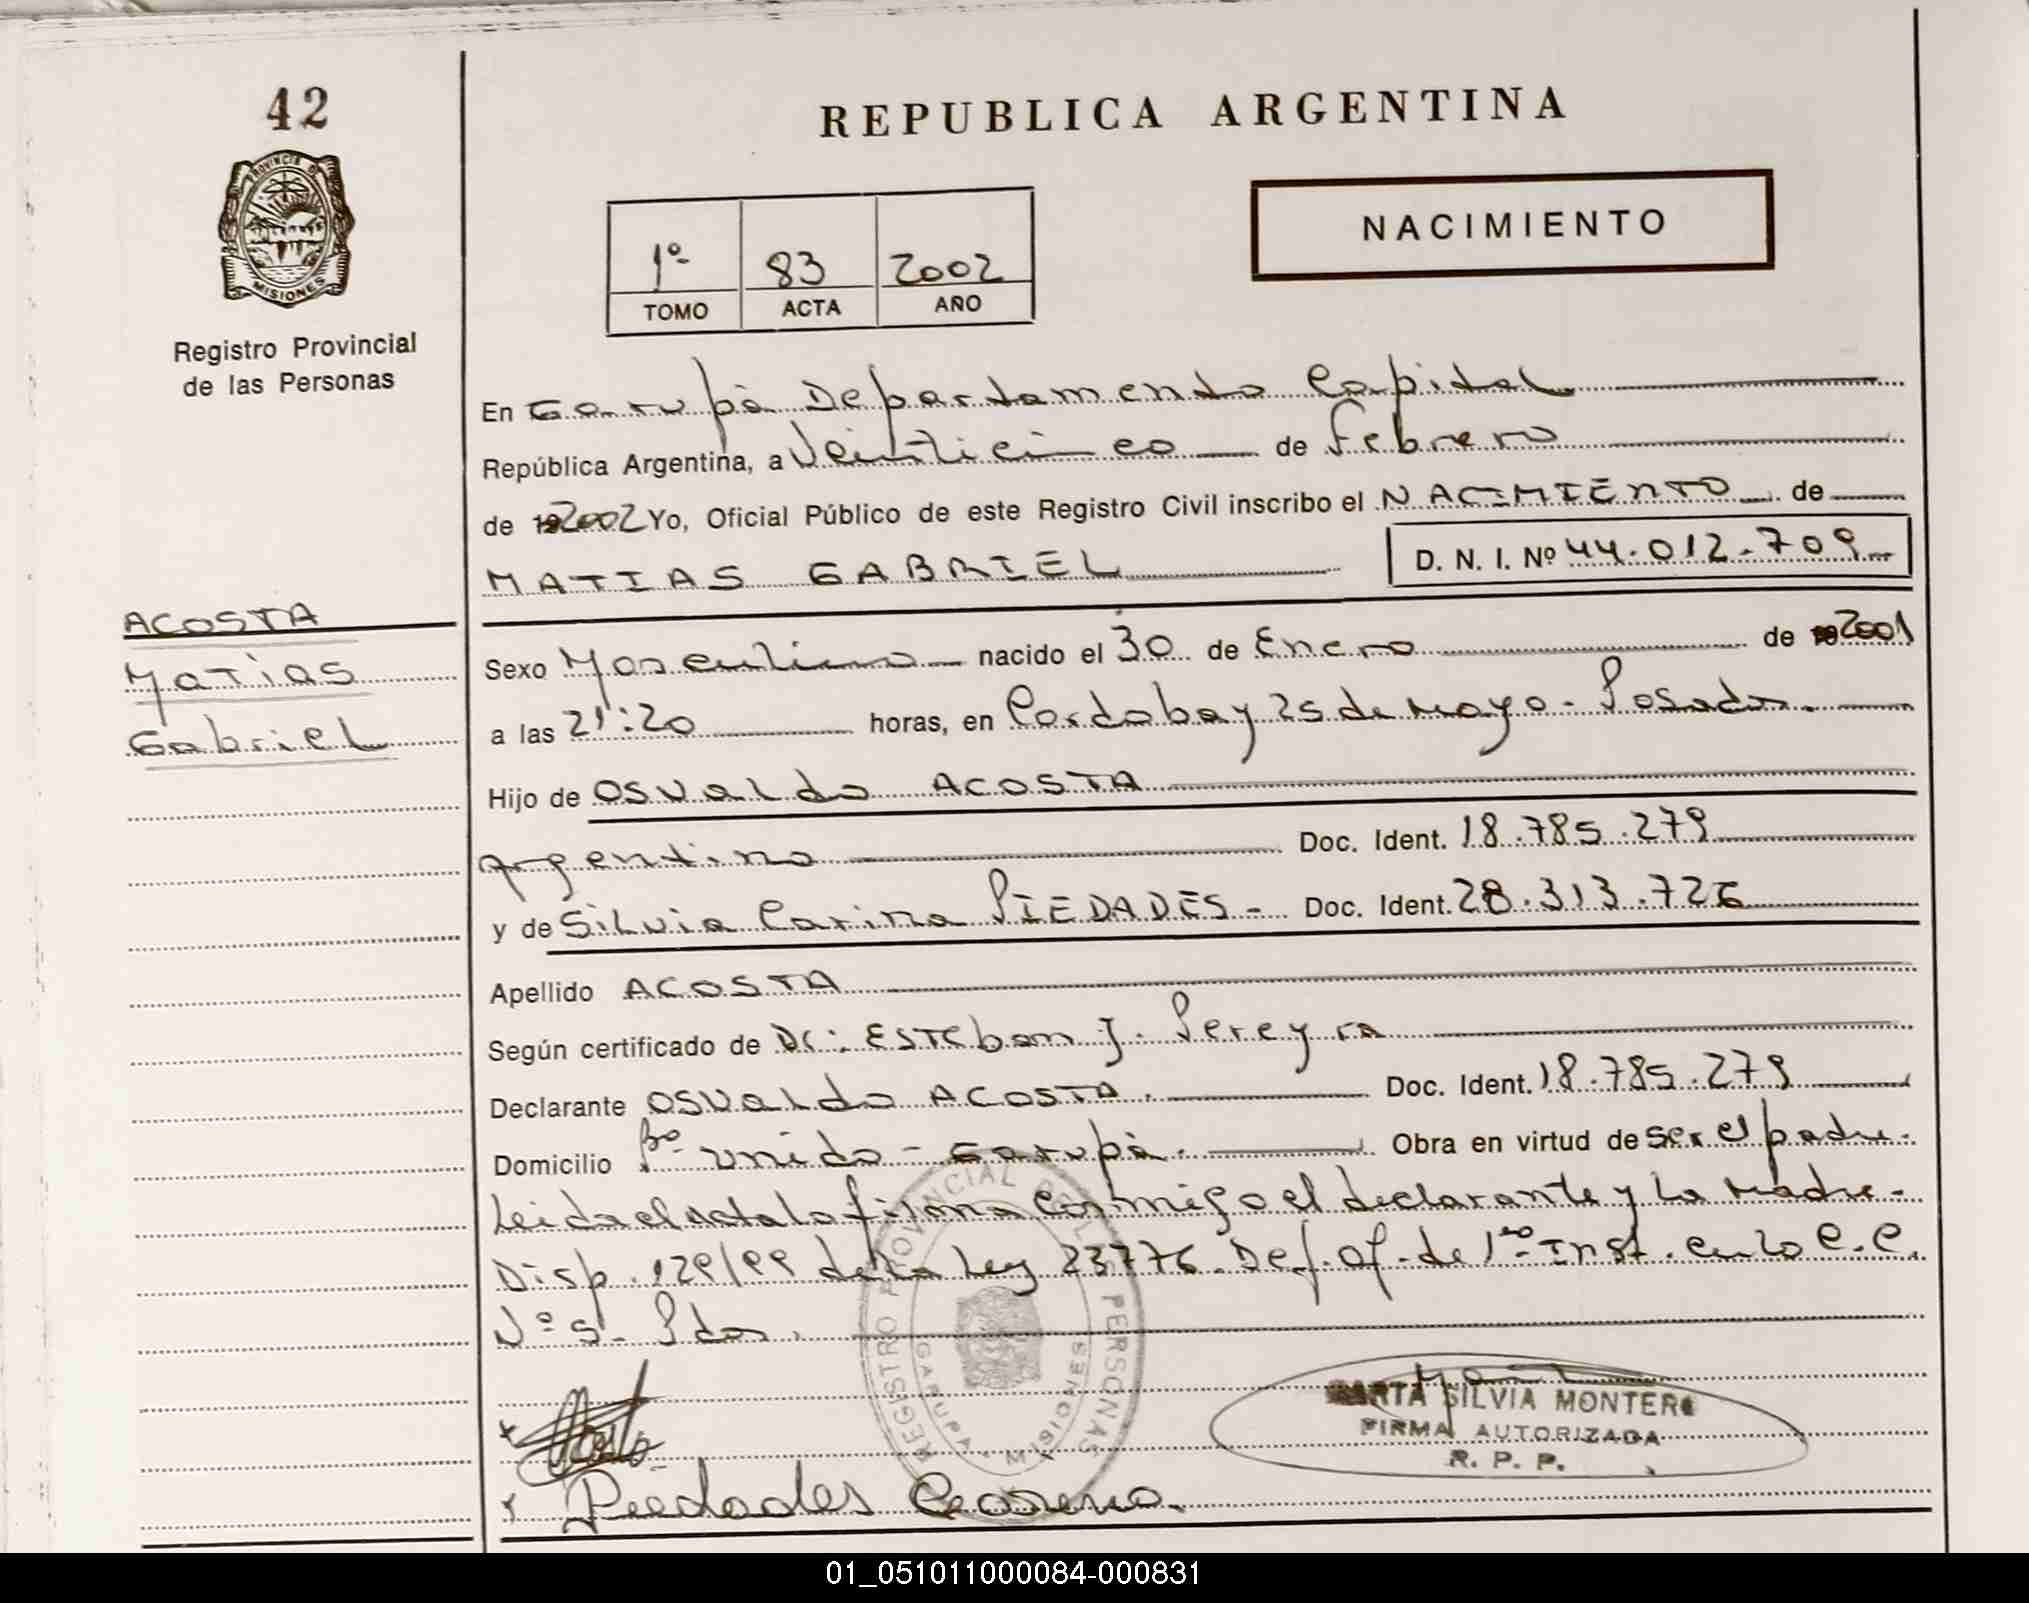 42
PROVINCIA DE
MISIONES
Registro Provincial
de las Personas
REPUBLICA ARGENTINA
1º 83 2002
TOMO ACTA AÑO
NACIMIENTO
En Garupá Departamento Capital
República Argentina, a Veinticinco de Febrero
de 2002 Yo, Oficial Público de este Registro Civil inscribo el NACIMIENTO de
MATIAS GABRIEL D. N. I. Nº 44.012.709
ACOSTA
Matias
Gabriel
Sexo Masculino nacido el 30 de Enero de 2001
a las 21:20 horas, en Cordoba y 25 de Mayo - Posadas.
Hijo de OSVALDO ACOSTA
Argentino Doc. Ident. 18.785.279
y de Silvia Carina PIEDADES - Doc. Ident. 28.313.726
Apellido ACOSTA
Según certificado de Dr: Esteban J. Pereyra
Declarante OSVALDO ACOSTA. Doc. Ident. 18.785.279
Domicilio Bº Unido - Garupá. Obra en virtud de ser el padre.
Leida el acta la firma conmigo el declarante y la madre.
Disp. 129/99 de la Ley 23776. Def. Of. de 1ra Inst. en lo C.C.
Nº Pdas.
REGISTRO PROVINCIAL DE LAS PERSONAS
GARUPA MISIONES
MARTA SILVIA MONTERO
FIRMA AUTORIZADA
R. P. P.
Piedades
01_051011000084-000831